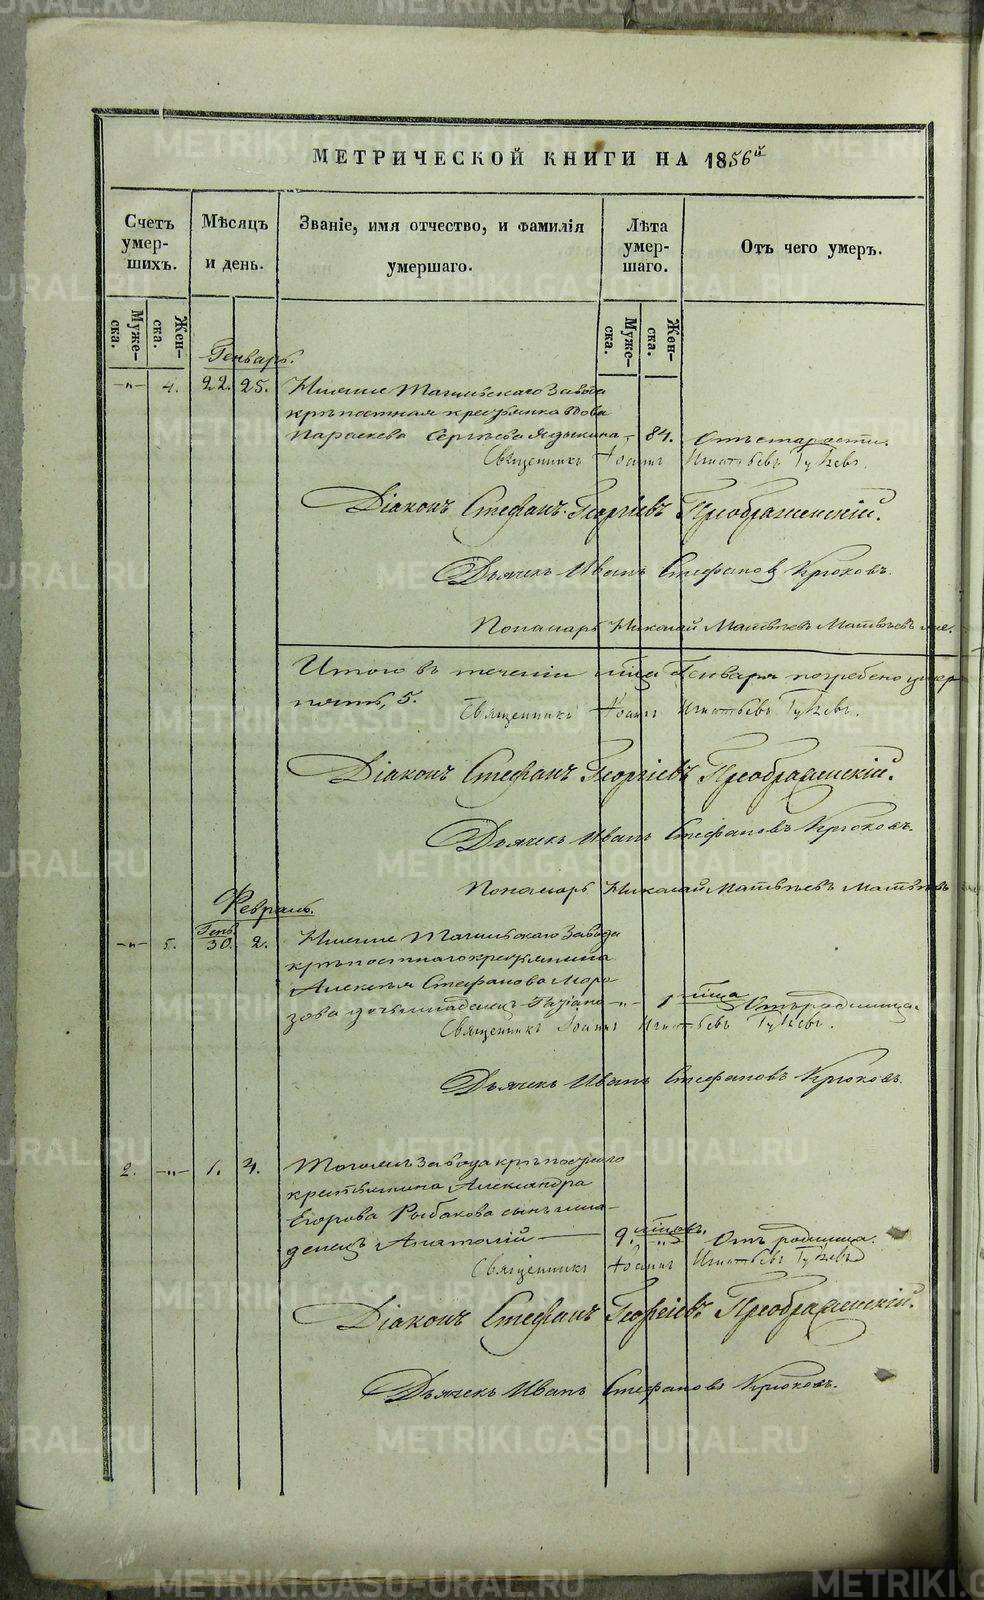 МЕТРИЧЕСКОЙ КНИГИ НА 1856й
Счетъ умер- шихъ.
Мѣсяцъ и день.
Званіе, имя отчество, и фамилія умершаго.
Лѣта умер- шаго.
Отъ чего умеръ.
Муже- ска.
Жен- ска.
Муже- ска.
Жен- ска.
Генварь.
-"- 4. 22. 25. Нижне Тагильскаго Завода
крѣпостная крестьянка вдова
Параскева Сергѣева - 84. Отъ старости.
Священникъ Іоаннъ Игнатьевъ
Діаконъ Стефанъ Георгіевъ Преображенскій.
Дьячекъ Иванъ Стефановъ Крюковъ.
Пономарь Николай Матвѣевъ Матвѣевъ
Итого въ теченіи мѣсяца Генваря погребено умер
пять, 5.
Священникъ Іоаннъ Игнатьевъ
Діаконъ Стефанъ Георгіевъ Преображенскій.
Дьячекъ Иванъ Стефановъ Крюковъ.
Пономарь Николай Матвѣевъ Матвѣевъ
Февраль.
Генв.
-"- 5. 30. 2. Нижне Тагильскаго Завода
крѣпостнаго крестьянина
Алексѣя Стефанова Моро
зова дочь младенецъ -"- 1 мѣсяца Отъ родимца.
Священникъ Іоаннъ Игнатьевъ
Дьячекъ Иванъ Стефановъ Крюковъ.
2. -"- 1. 4. Тогожъ Завода крѣпостнаго
крестьянина Александра
Егорова Рыбакова сынъ мла-
денецъ Анатолій — 9. мѣсяцовъ. " Отъ родимца.
Священникъ Іоаннъ Игнатьевъ
Діаконъ Стефанъ Георгіевъ Преображенскій.
Дьячекъ Иванъ Стефановъ Крюковъ.
METRIKI.GASO-URAL.RU